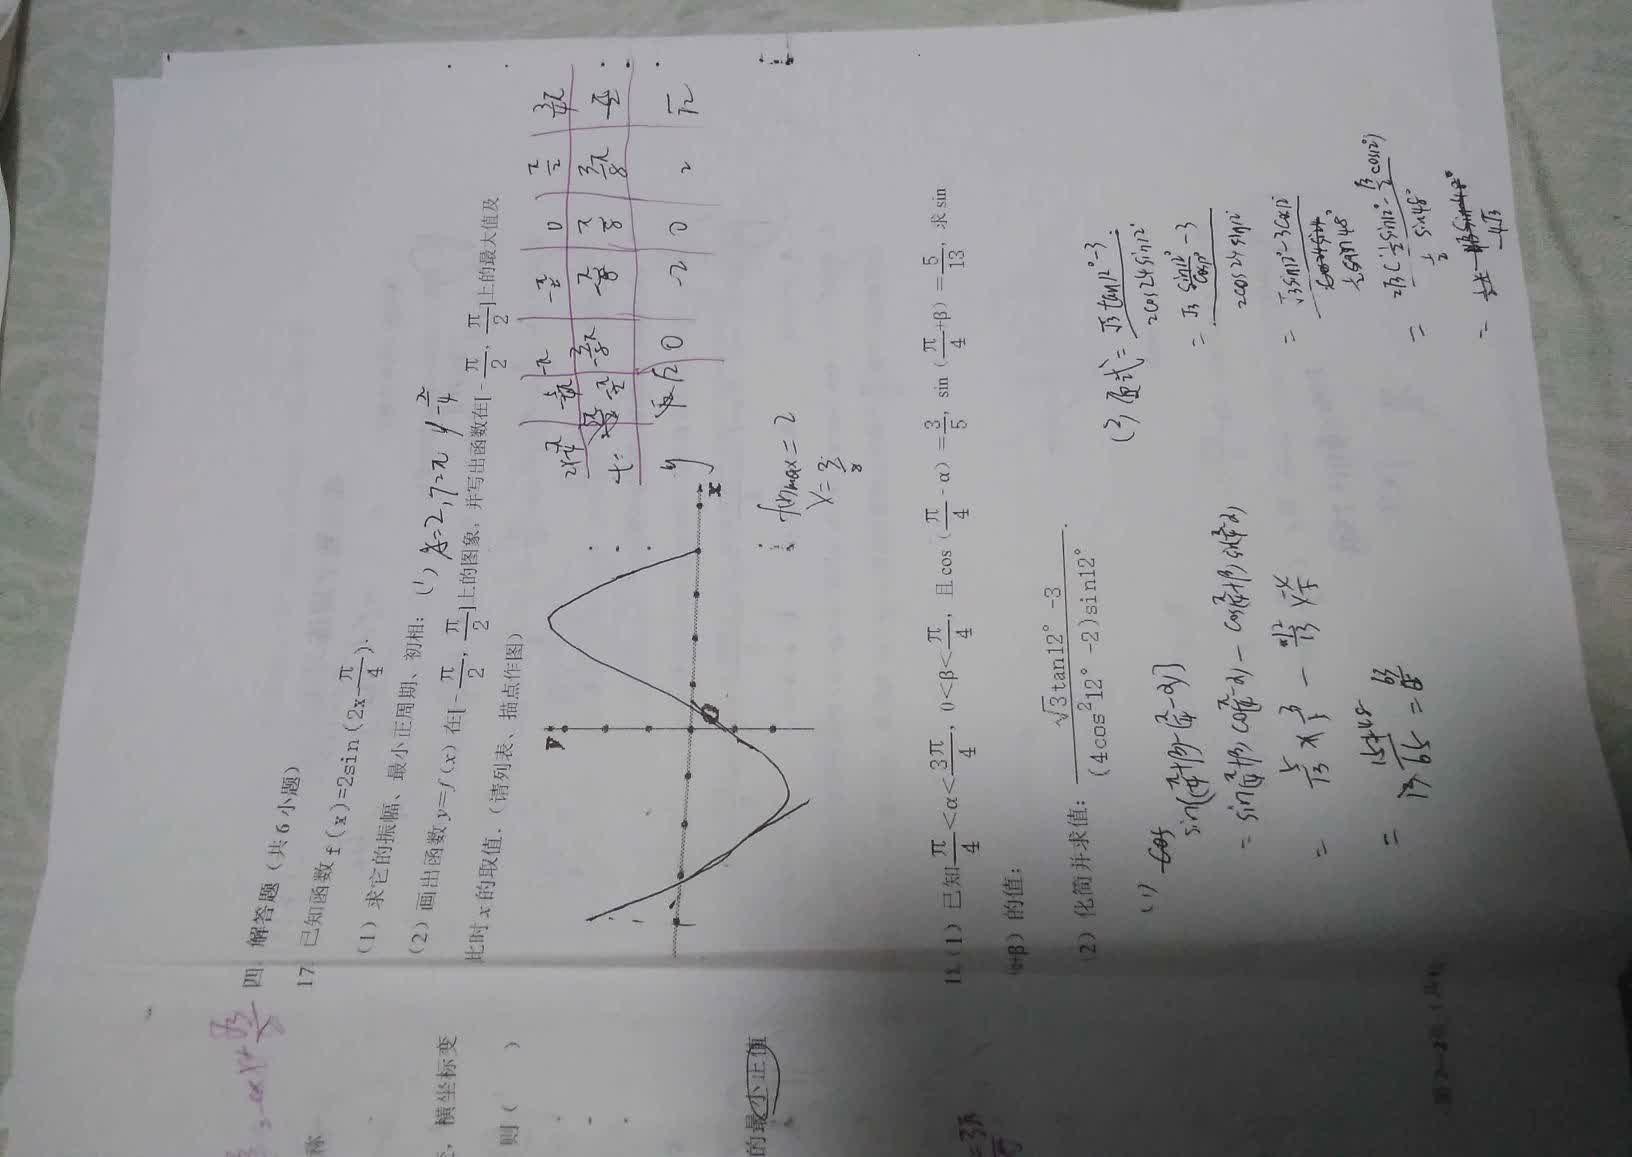 四. 解答题（共 6 小题）
17. 已知函数 f(x)=2sin(2x-π/4).
（1）求它的振幅、最小正周期、初相；
(1) A=2, T=π φ -π/4
（2）画出函数 y=f(x) 在[-π/2, π/2]上的图象，并写出函数在[-π/2, π/2]上的最大值及
此时 x 的取值.（请列表、描点作图）
2x-π/4 -5π/4 -π -π/2 0 π/2 3π/4
-π/2 -3π/8 -π/8 π/8 3π/8
y √2 0 -2 0 2 √2
y
O
x
f(x)max=2
x=3π/8
（1）已知π/4<α<3π/4, 0<β<π/4, 且cos(π/4-α)=3/5, sin(π/4+β)=5/13, 求sin
(α+β) 的值；
（2）化简并求值：(√3tan12°-3)/((4cos²12°-2)sin12°).
(1)
sin[(π/4+β)-(π/4-α)]
=sin(π/4+β)cos(π/4-α)-cos(π/4+β)sin(π/4-α)
=5/13×3/5-12/13×
=
(2) 原式=(√3tan12°-3)/(2cos24°sin12°)
=(√3 sin12°/cos12°-3)/(2cos24°sin12°)
=(√3sin12°-3cos12°)/(½sin48°)
=2√3(½sin12°-√3/2cos12°)/(½sin48°)
=-4√3
称
, 横坐标变
则（ ）
的最小正值